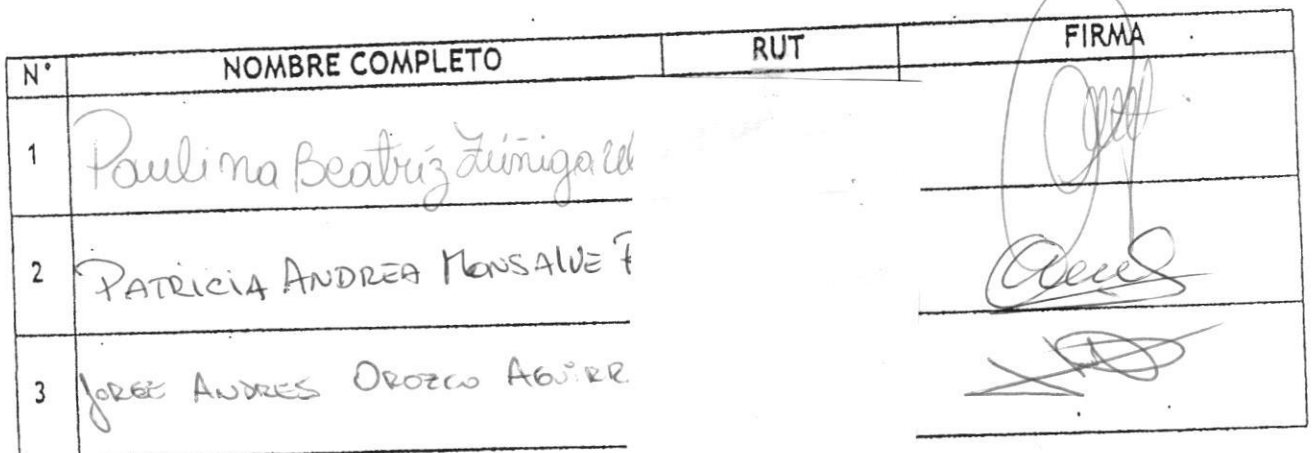 N° NOMBRE COMPLETO RUT FIRMA
1 Paulina Beatríz Zúñiga
2 PATRICIA ANDREA MONSALVE
3 JORGE ANDRES OROZCO AGUIRR